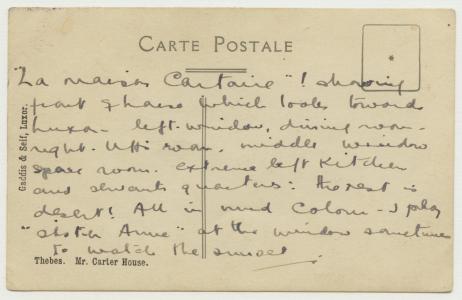 CARTE POSTALE
"La maison Cartaire"! showing
front of house which looks towards
Luxor - left window, dining room -
right. room, middle window
spare room. extreme left Kitchen
and servants quarters: the rest is
desert! All in mud colour - I play
"Sister Anne" at the window sometimes
to watch the sunset
Gaddis & Seif, Luxor.
Thebes. Mr. Carter House.